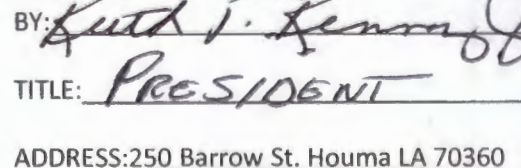 BY: Keith J. Kenn
TITLE: PRESIDENT
ADDRESS:250 Barrow St. Houma LA 70360